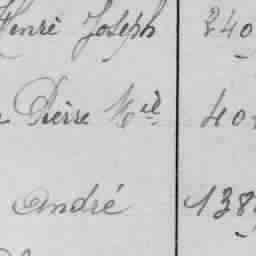 Henri Joseph 240
Pierre Mel 40
André 138